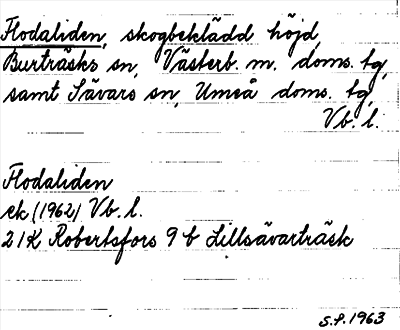 Flodaliden, skogbeklädd höjd,
Burträsks sn, Västerb. m. doms. tg,
samt Sävars sn, Umeå doms. tg,
Vb. l.
Flodaliden
ek (1962) Vb. l.
21K Robertsfors 9 b Lillsävarträsk
S.P. 1963